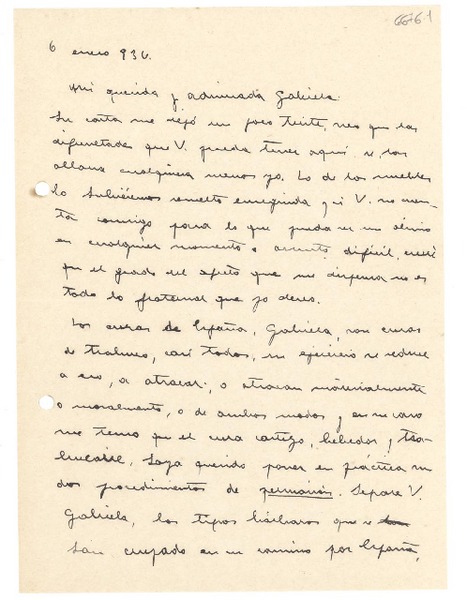 6676.1
6 enero 936.
Mi querida y admirada Gabriela:
Su carta me dejó un poco triste, veo que las
dificultades que V. pueda tener aquí se las
allana cualquiera menos yo. Lo de los muebles
lo hubiéramos resuelto enseguida y si V. no cuen-
ta conmigo para lo que pueda ser un alivio
en cualquier momento o asunto difícil, creeré
que el grado del afecto que me dispensa no es
todo lo fraternal que yo deseo.
Los curas de España, Gabriela, son curas
de trabuco, casi todos, su ejercicio se reduce
a eso, a atracar; o atracan materialmente
o moralmente, o de ambos modos y en su caso
me temo que el cura bebedor y tra-
bucaire, haya querido poner en práctica su
dos procedimientos de persuasión. Separe V.
Gabriela, los tipos bárbaros que se
han cruzado en su camino por España,